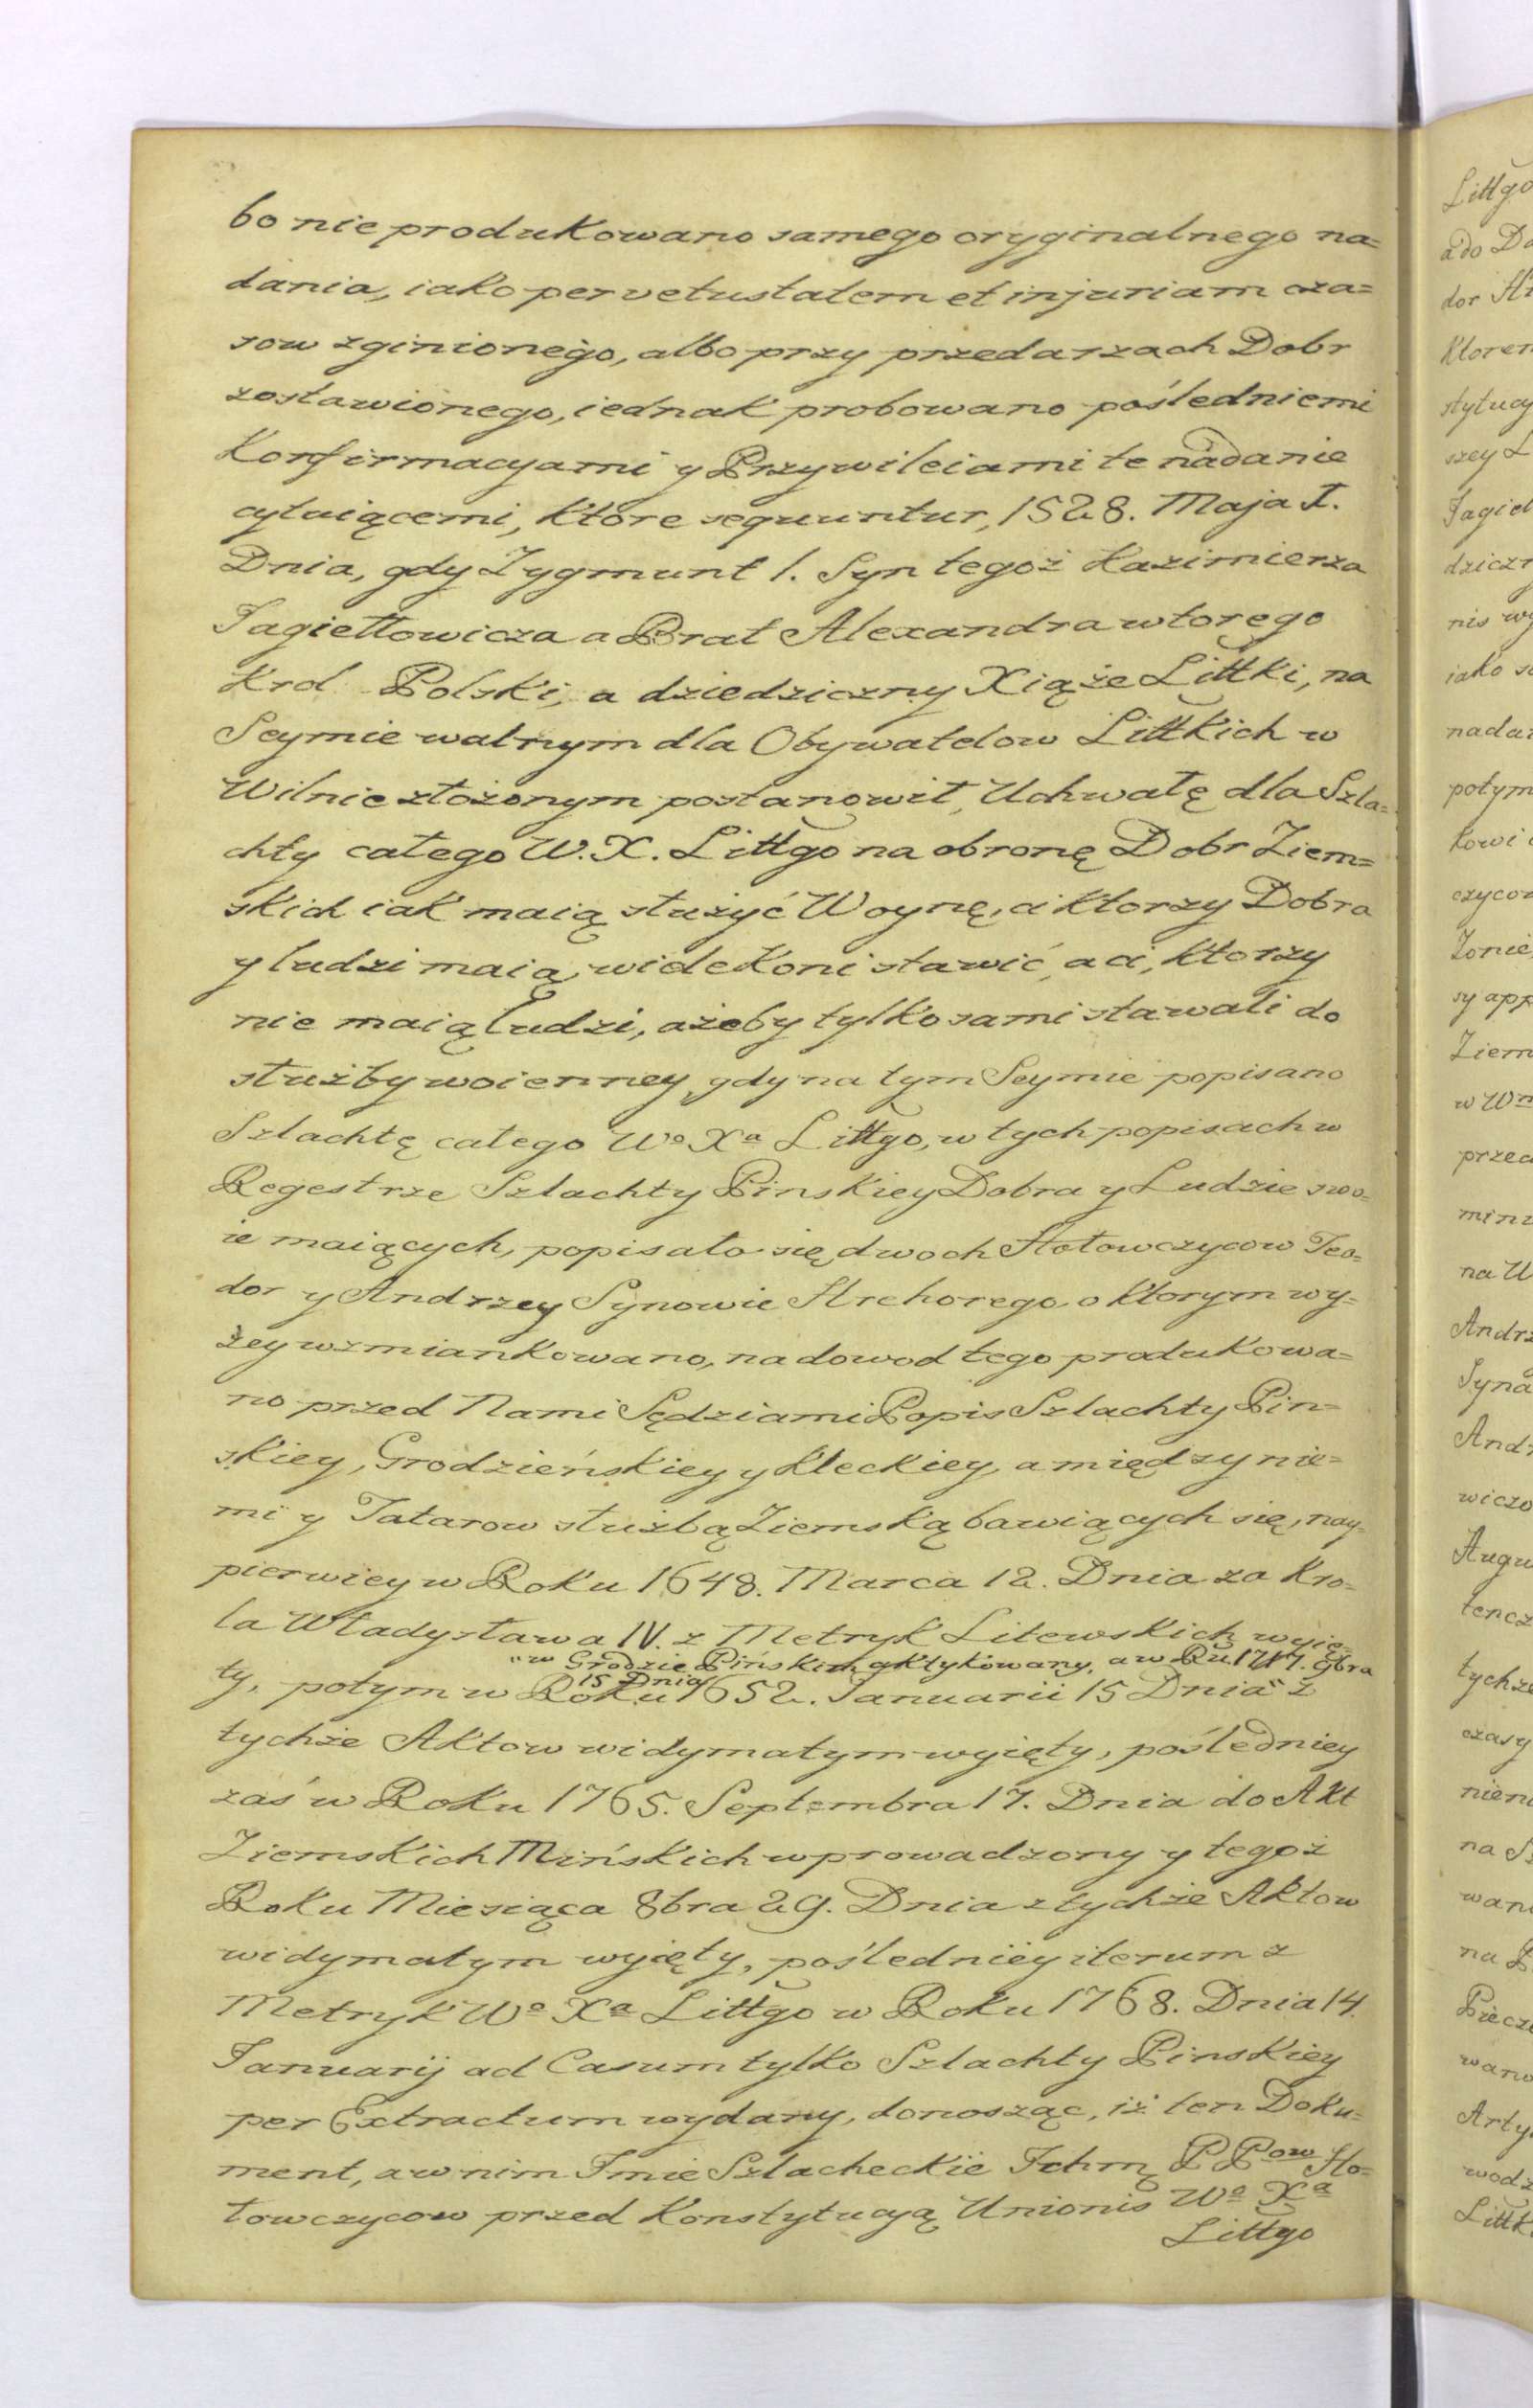 bo nie produkowano samego oryginalnego na=
dania, iako per vetustatem et injuriam cza=
sow zginionego, albo przy przedarzach Dobr
zostawionego, iednak probowano poślednięmi
Konfirmacyami y Przywileiami te nadanie
cytuiącemi, które sequuntur, 1528. Maja I.
Dnia, gdy Zygmunt 1. Syn tegoż Kazimierza
Jagiełłowicza a Brat Alexandra wtorego
Krol Polski, a dziedziczny Xiąże Littki, na
Seymie walnym dla Obywatelow Littkich w
Wilnie złożonym postanowił, Uchwałę dla Szla=
chty całego W. X. Littgo na obronę Dobr Ziem=
skich iak maią służyć Woynę, ci ktorzy Dobra
y ludzi maią, wiele Koni stawić, a ci, ktorzy
nie maią ludzi, ażeby tylko sami stawali do
służby woienney, gdy na tym Seymie popisano
Szlachtę całego Wo Xa Littgo, w tych popisach w
Regestrze Szlachty Pinskiey Dobra y Ludzie swo=
ie maiących, popisało się dwoch Hołowczycow Teo=
dor y Andrzey Synowie Hrehorego, o ktorym wy=
żey wzmiankowano, na dowod tego produkowa=
no przed Nami Sędziami Popis Szlachty Pin=
skiey, Grodzieńskiey y Kleckiey, a między nie=
mi y Tatarow służbą Ziemską bawiących się, nay=
pierwiey w Roku 1648. Marca 12. Dnia za Kro=
la Władysława IV. z Metryk Litewskich wyię=
"w Grodzie Pińskim aktykowany, a w Ru 1717. 9bra
15 Dnia
ty, potym w Roku 1652. Januarii 15 Dnia" z
tychże Aktow widymatym wyięty, pośledniey
zaś w Roku 1765. Septembra 17. Dnia do Akt
Ziemskich Mińskich wprowadzony y tegoż
Roku Miesiąca 8bra 29. Dnia z tychże Aktow
widymatym wyięty, pośledniey iterum z
Metryk Wo Xa Littgo w Roku 1768. Dnia 14.
Januarij ad Casum tylko Szlachty Pinskiey
per Extractum wydany, donosząc, iż ten Doku=
ment, a w nim Imie Szlacheckie Ichm PPow Ho=
łowczycow przed Konstytucyą Unionis Wo Xa
Littgo